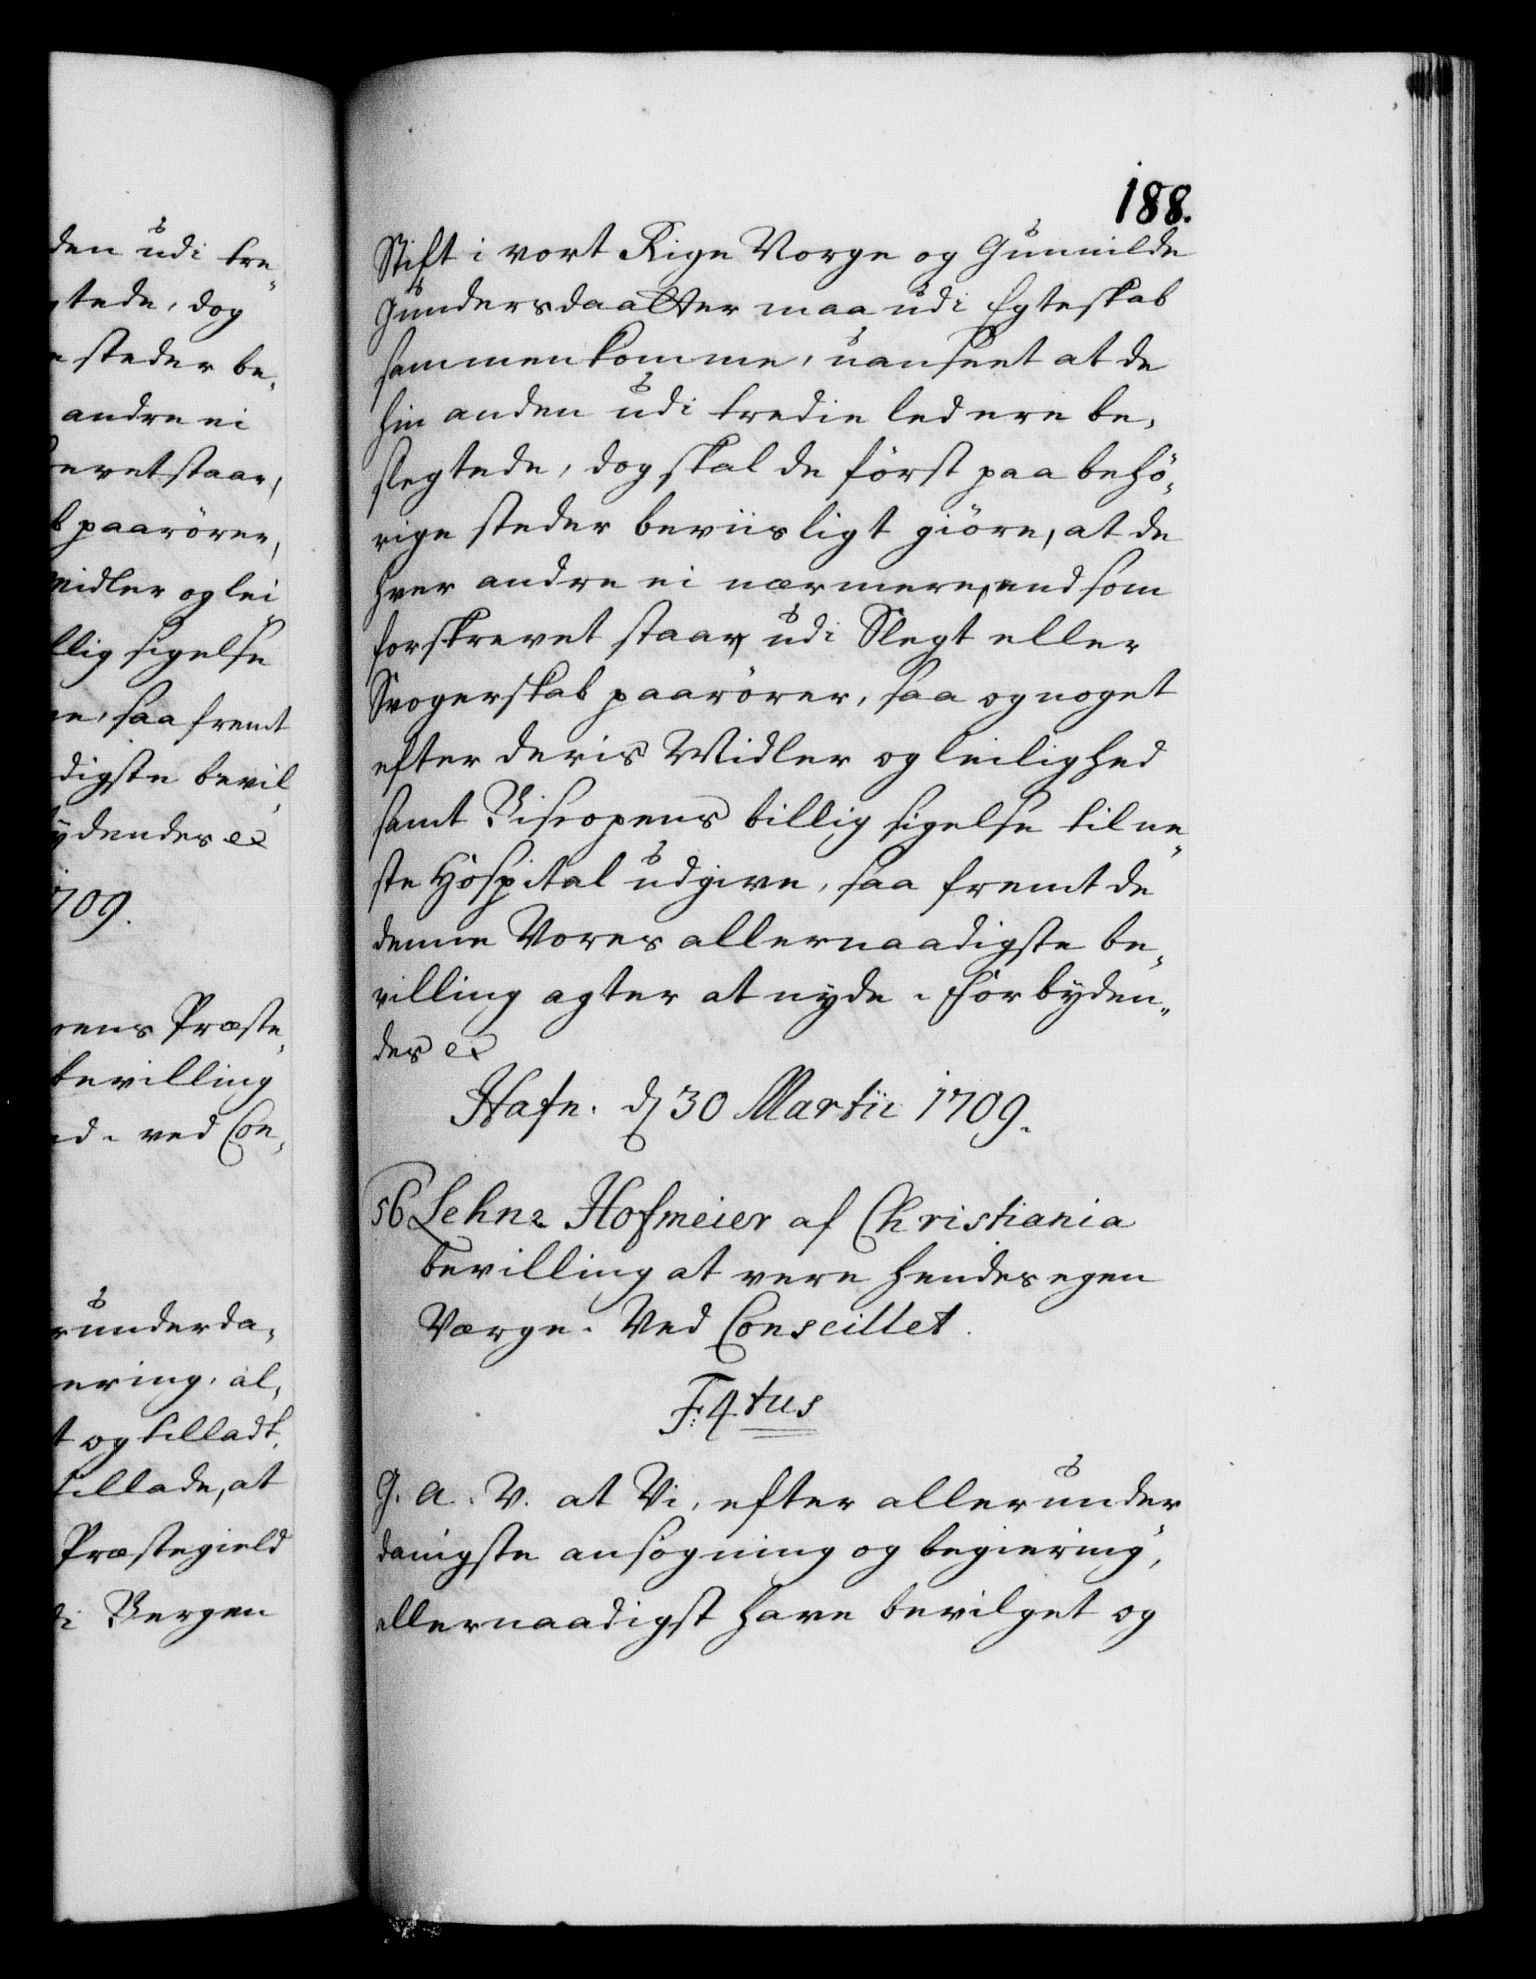 den udi tre„
gtede, dog
steder be,
andre ei
revet staar,
paarörer,
Midler og lei
llig sigelse
saa fremt
digste bevil
ydendes etc
1709.
Præste,
bevilling
ved Con,
runderda,
ering, al,
t og tilladt,
tillade, at
Præstegield
i Bergen
188.
Stift i vort Rige Norge og Gunnilde
Gundersdaatter maa udi Egteskab
sammenkomme, uanseet at de
hin anden udi tredie led ere be,
slegtede, dog skal de först paa behö,
rige steder beviisligt giöre, at de
hver andre ei nærmere, end som
forskrevet staar, udi Slegt eller
Svogerskab paarörer, saa og noget
efter deris Midler og leilighed
samt Biscopens billig sigelse til ne„
ste Hospital udgive, saa fremt de
denne Vores allernaadigste be„
villing agter at nyde. Forbyden„
des etc
Hafn. d 30 Martii 1709.
56 Lehne Hofmeier af Christiania
bevilling at vere hendes egen
Værge. Ved Conseillet.
F: 4tus
G. A. V. at Vi, efter allerunder
danigste ansögning og begiering,
allernaadigst have bevilget og